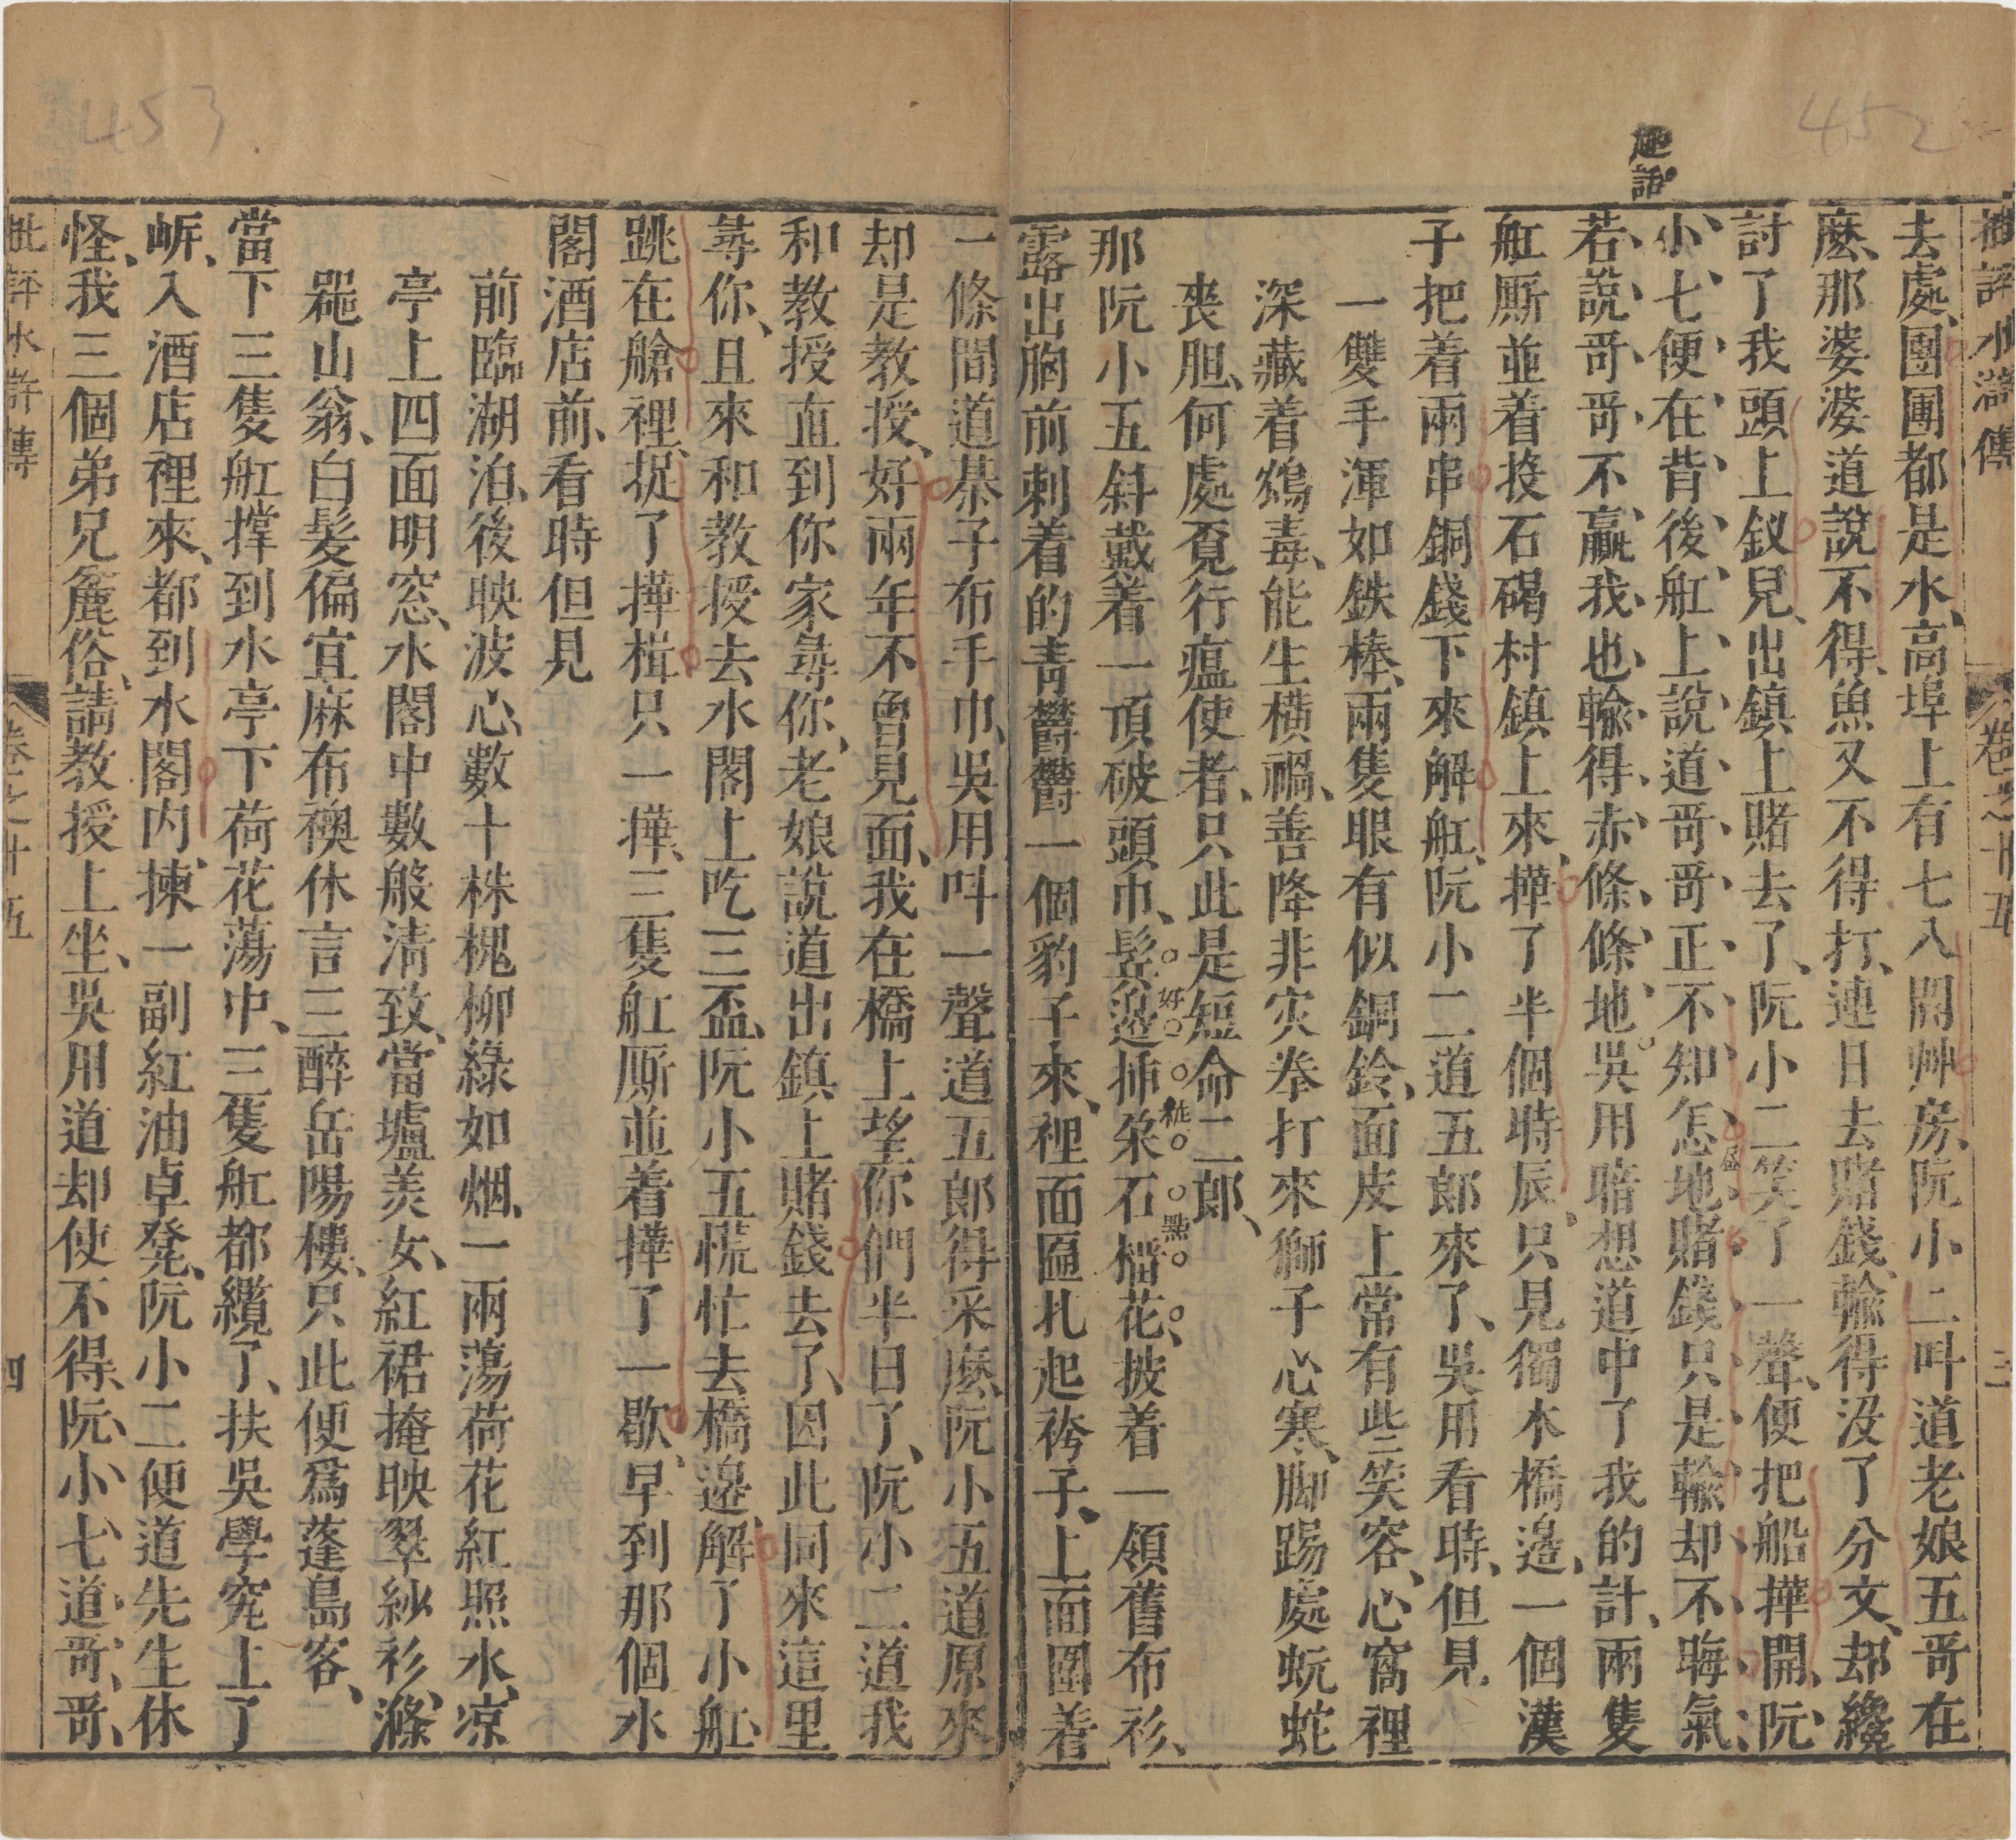 452
趣話
批評水滸傳 卷之十五 三
去處、團團都是水、高埠上有七八間艸房、阮小二呌道老娘五哥在
麽、那婆婆道說不得、魚又不得打、連日去賭錢、輸得没了分文、却纔
討了我頭上釵兒、出鎮上賭去了、阮小二笑了一聲、便把船㨽開、阮
小七便在背後舡上說道哥哥正不知怎地賭錢只是輸却不晦氣
若說哥哥不贏我也輸得赤條條地吳用暗想道中了我的計、兩隻
舡厮並着投石碣村鎮上來、㨽了半個時辰、只見獨木橋邉、一個漢
子把着兩串銅錢下來解舡、阮小二道五郎來了、吳用看時、但見
一雙手渾如鉄棒、兩隻眼有似銅鈴、面皮上常有些笑容、心窩裡
深藏着鴆毒、能生横禍、善降非灾拳打來獅子心寒、脚踢處蚖蛇
喪胆、何處覔行瘟使者、只此是短命二郎、
那阮小五斜戴着一頂破頭巾、鬂邉揷朶石榴花、披着一領舊布衫、
露出胸前刺着的青欝欝一個豹子來、裡面匾扎起袴子、上面圍着
一條間道棊子布手巾、吳用呌一聲道五郎得采麽、阮小五道原來
却是教授、好兩年不曾見面、我在橋上望你們半日了、阮小二道我
和教授直到你家尋你、老娘說道出鎮上賭錢去了、因此同來這里
尋你、且來和教授去水閣上吃三盃、阮小五慌忙去橋邉解了小舡、
跳在艙裡、捉了㨽楫只一㨽、三隻舡厮並着㨽了一歇、早到那個水
閣酒店前、看時但見
前臨湖泊、後映波心、數十株槐柳綠如烟、一兩蕩荷花紅照水、凉
亭上四面明窓、水閣中數般清致、當壚美女、紅裙掩映翠紗衫、滌
噐山翁、白髪偏宜麻布襖休言三醉岳陽樓、只此便爲蓬島客、
當下三隻舡撑到水亭下荷花蕩中、三隻舡都纜了、扶吳學究上了
岍、入酒店裡來、都到水閣内、揀一副紅油卓凳、阮小二便道先生休
怪、我三個弟兄麄俗、請教授上坐、吳用道却使不得、阮小七道哥哥
批評水滸傳 卷之十五 四
453